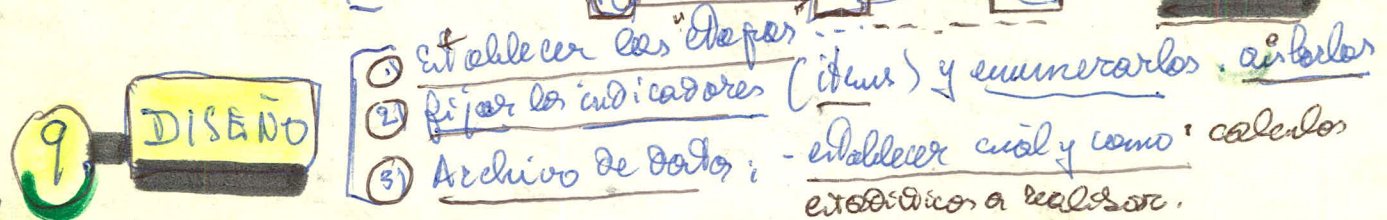 9 DISEÑO
1) Establecer las "etapas" ...
2) fijar los indicadores (items) y enumerarlos. aislarlos
3) Archivo de datos: - establecer cuál y como: calculos
estadísticos a realisar.